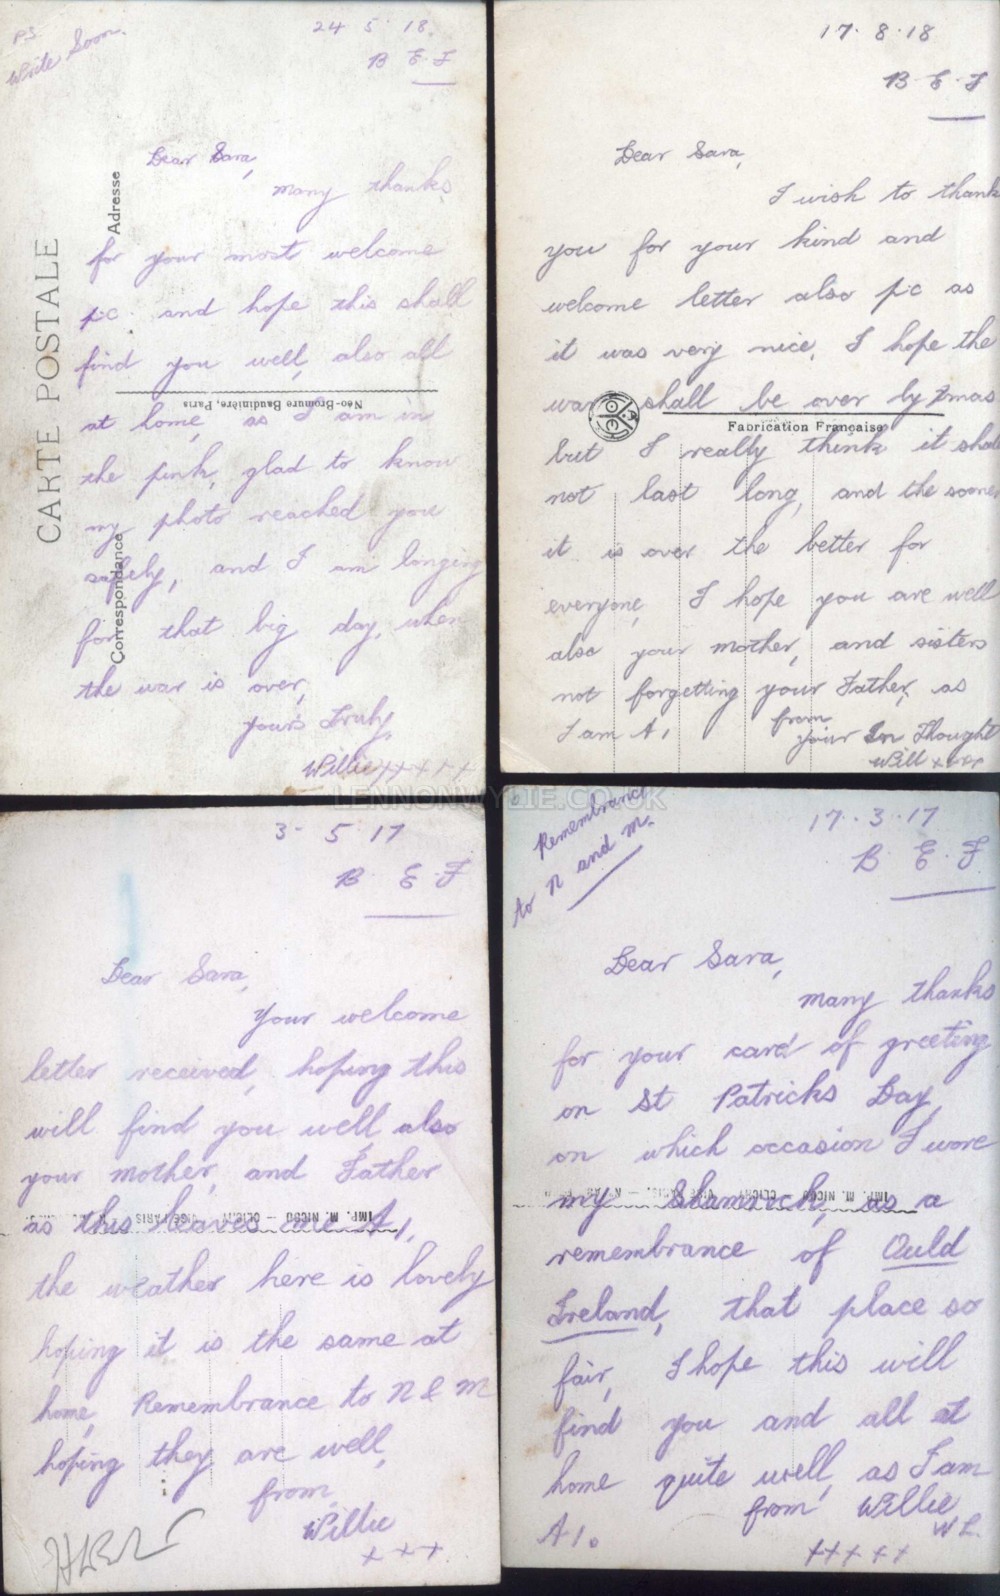 PS
Write Soon.
24 5 18.
B E F
Dear Sara,
many thanks
for your most welcome
p.c. and hope this shall
find you well, also all
at home, as I am in
the pink, glad to know
my photo reached you
safely, and I am longing
for that big day, when
the war is over,
yours Truly,
Willie +++++
CARTE POSTALE
Adresse
Correspondance
Néo-Bromure Baudinière, Paris
17. 8. 18
B. E. F
Dear Sara,
I wish to thank
you for your kind and
welcome letter also p.c as
it was very nice, I hope the
war shall be over by Xmas
Fabrication Française
but I really think it shall
not last long, and the sooner
it is over the better for
everyone, I hope you are well
also your mother, and sisters
not forgetting your Father, as
I am A1
from
your In Thought
Will ++++
LENNONWYLIE.CO.UK
3- 5 17
B. E. F
Dear Sara,
Your welcome
letter received, hoping this
will find you well also
your mother, and Father
as this leaves me A1,
IMP. M. NICOD
CLICHY
PARIS
the weather here is lovely
hoping it is the same at
home, Remembrance to N & M
hoping they are well,
from,
Willie
+++
Remembrance
to N and M.
17. 3. 17
B. E. F
Dear Sara,
many thanks
for your card of greeting
on St Patricks Day,
on which occasion I wore
my Shamrock, as a
IMP. M. NICOD
CLICHY
remembrance of Ould
Ireland, that place so
fair, I hope this will
find you and all at
home quite well, as I am
from Willie
A1.
W L.
+++++